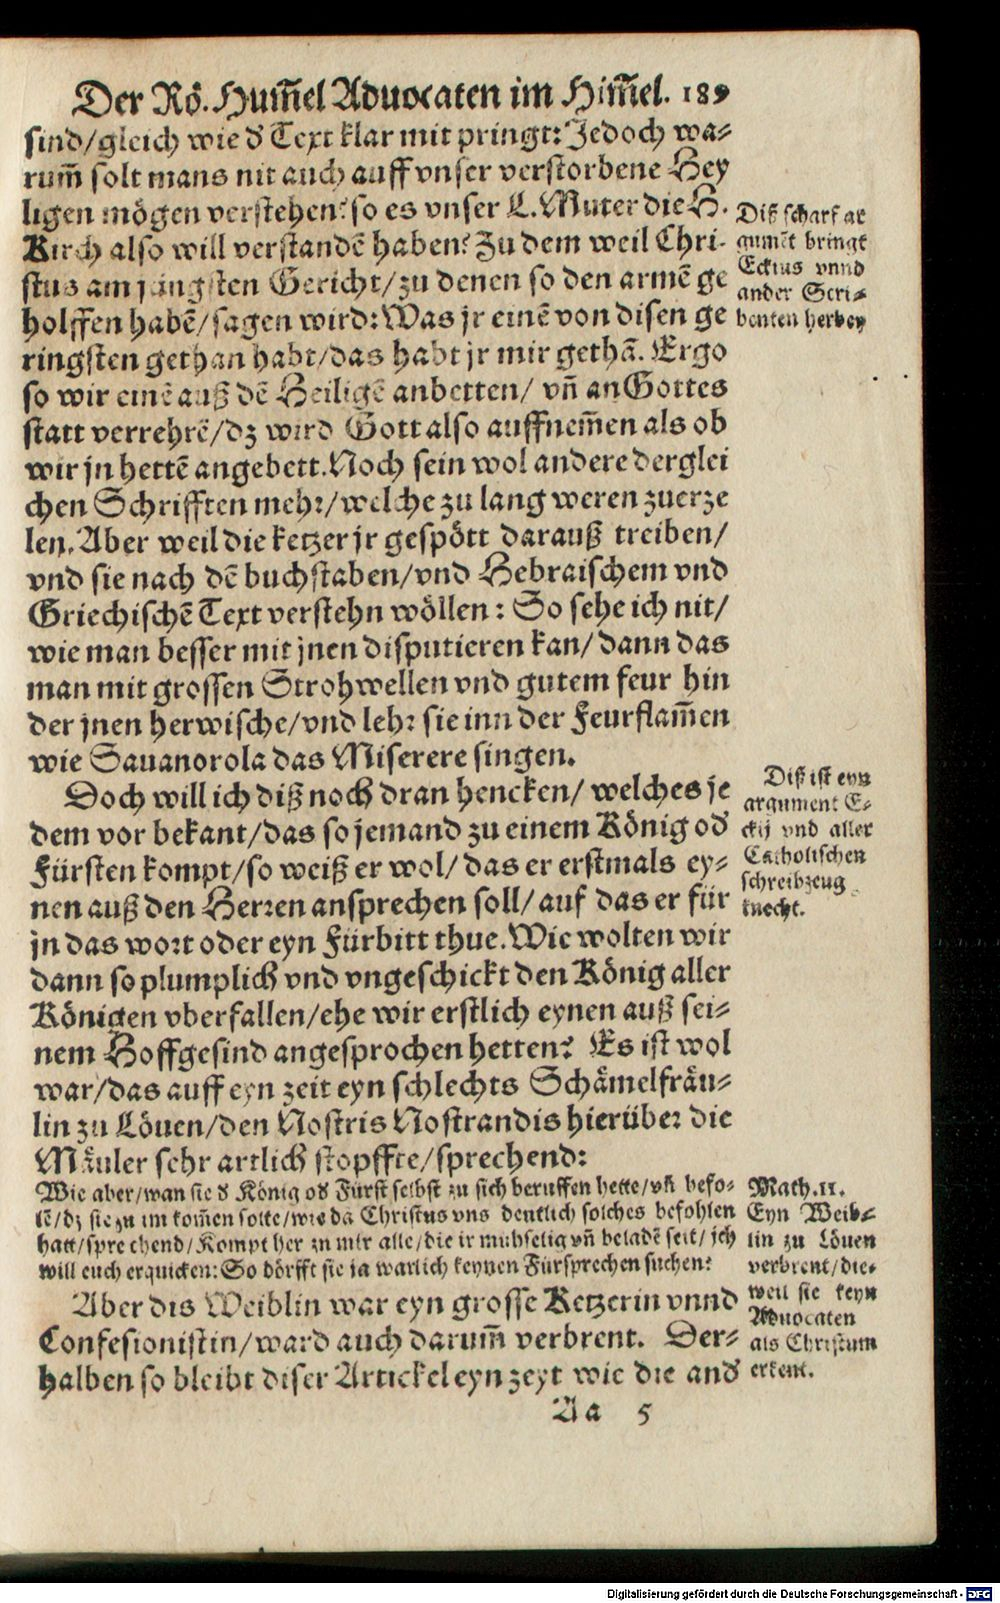 Der Rö. Hum̃el Aduocaten im Him̃el. 189
sind/gleich wie d Text klar mit pringt: Jedoch wa-
rum̃ solt mans nit auch auff vnser verstorbene Hey
ligen mögen verstehen? so es vnser L. Muter die H.
Kirch also will verstandẽ haben? Zu dem weil Chri-
stus am jüngsten Gericht/zu denen so den armẽ ge
holffen habẽ/sagen wird: Was jr einẽ von disen ge
ringsten gethan habt/das habt jr mir gethã. Ergo
so wir einẽ auß dẽ Heiligẽ anbetten/ vñ an Gottes
statt verrehrẽ/dz wird Gott also auffnem̃en als ob
wir jn hettẽ angebett. Noch sein wol andere derglei
chen Schrifften mehr/welche zu lang weren zuerze
len. Aber weil die ketzer jr gespött darauß treiben/
vnd sie nach dẽ buchstaben/vnd Hebraischem vnd
Griechischẽ Text verstehn wöllen: So sehe ich nit/
wie man besser mit jnen disputieren kan/dann das
man mit grossen Strohwellen vnd gutem feur hin
der jnen herwische/vnd lehr sie inn der Feurflam̃en
wie Sauanorola das Miserere singen.
Doch will ich diß noch dran hencken/ welches je
dem vor bekant/das so jemand zu einem König od
Fürsten kompt/so weiß er wol/das er erstmals ey-
nen auß den Herren ansprechen soll/auf das er für
jn das wort oder eyn Fürbitt thue. Wie wolten wir
dann so plumplich vnd vngeschickt den König aller
Königen vberfallen/ehe wir erstlich eynen auß sei-
nem Hoffgesind angesprochen hetten? Es ist wol
war/das auff eyn zeit eyn schlechts Schämelfräu-
lin zu Löuen/den Nostris Nostrandis hierüber die
Mäuler sehr artlich stopffte/sprechend:
Wie aber/wan sie d König od Fürst selbst zu sich beruffen hette/vñ befo-
lẽ/dz sie zu im kom̃en solte/wie da Christus vns deutlich solches befohlen
hatt/sprechend/Kompt her zu mir alle/die ir mühselig vñ beladẽ seit/ich
will euch erquicken: So dörfft sie ja warlich keynen Fürsprechen suchen?
Aber dis Weiblin war eyn grosse Ketzerin vnnd
Confesionistin/ward auch darum̃ verbrent. Der-
halben so bleibt diser Artickel eyn zeyt wie die and
Aa 5
Diß scharf ar
gumẽt bringt
Eckius vnnd
ander Scri-
benten herbey
Diß ist eyn
argument E-
ckij vnd aller
Catholischen
schreibzeug
knecht.
Math. 11.
Eyn Weib-
lin zu Löuen
verbrent/die-
weil sie keyn
Aduocaten
als Christum
erkent.
Digitalisierung gefördert durch die Deutsche Forschungsgemeinschaft - DFG